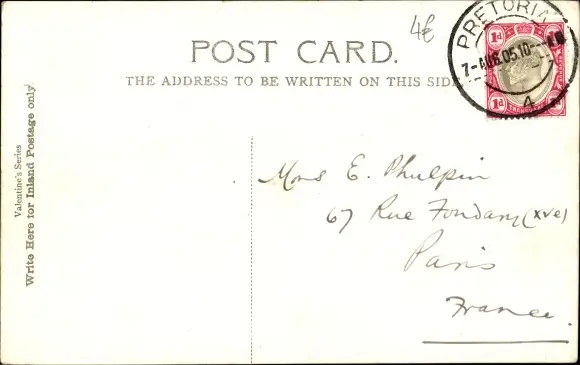 4€
POST CARD.
THE ADDRESS TO BE WRITTEN ON THIS SIDE
PRETORIA
7-AUG.05.10--AM
4
1d 1d
1d 1d
TRANSVAAL
Valentine's Series
Write Here for Inland Postage only.
Mons E. Phulpin
67 Rue Fondary (XVe)
Paris
France.